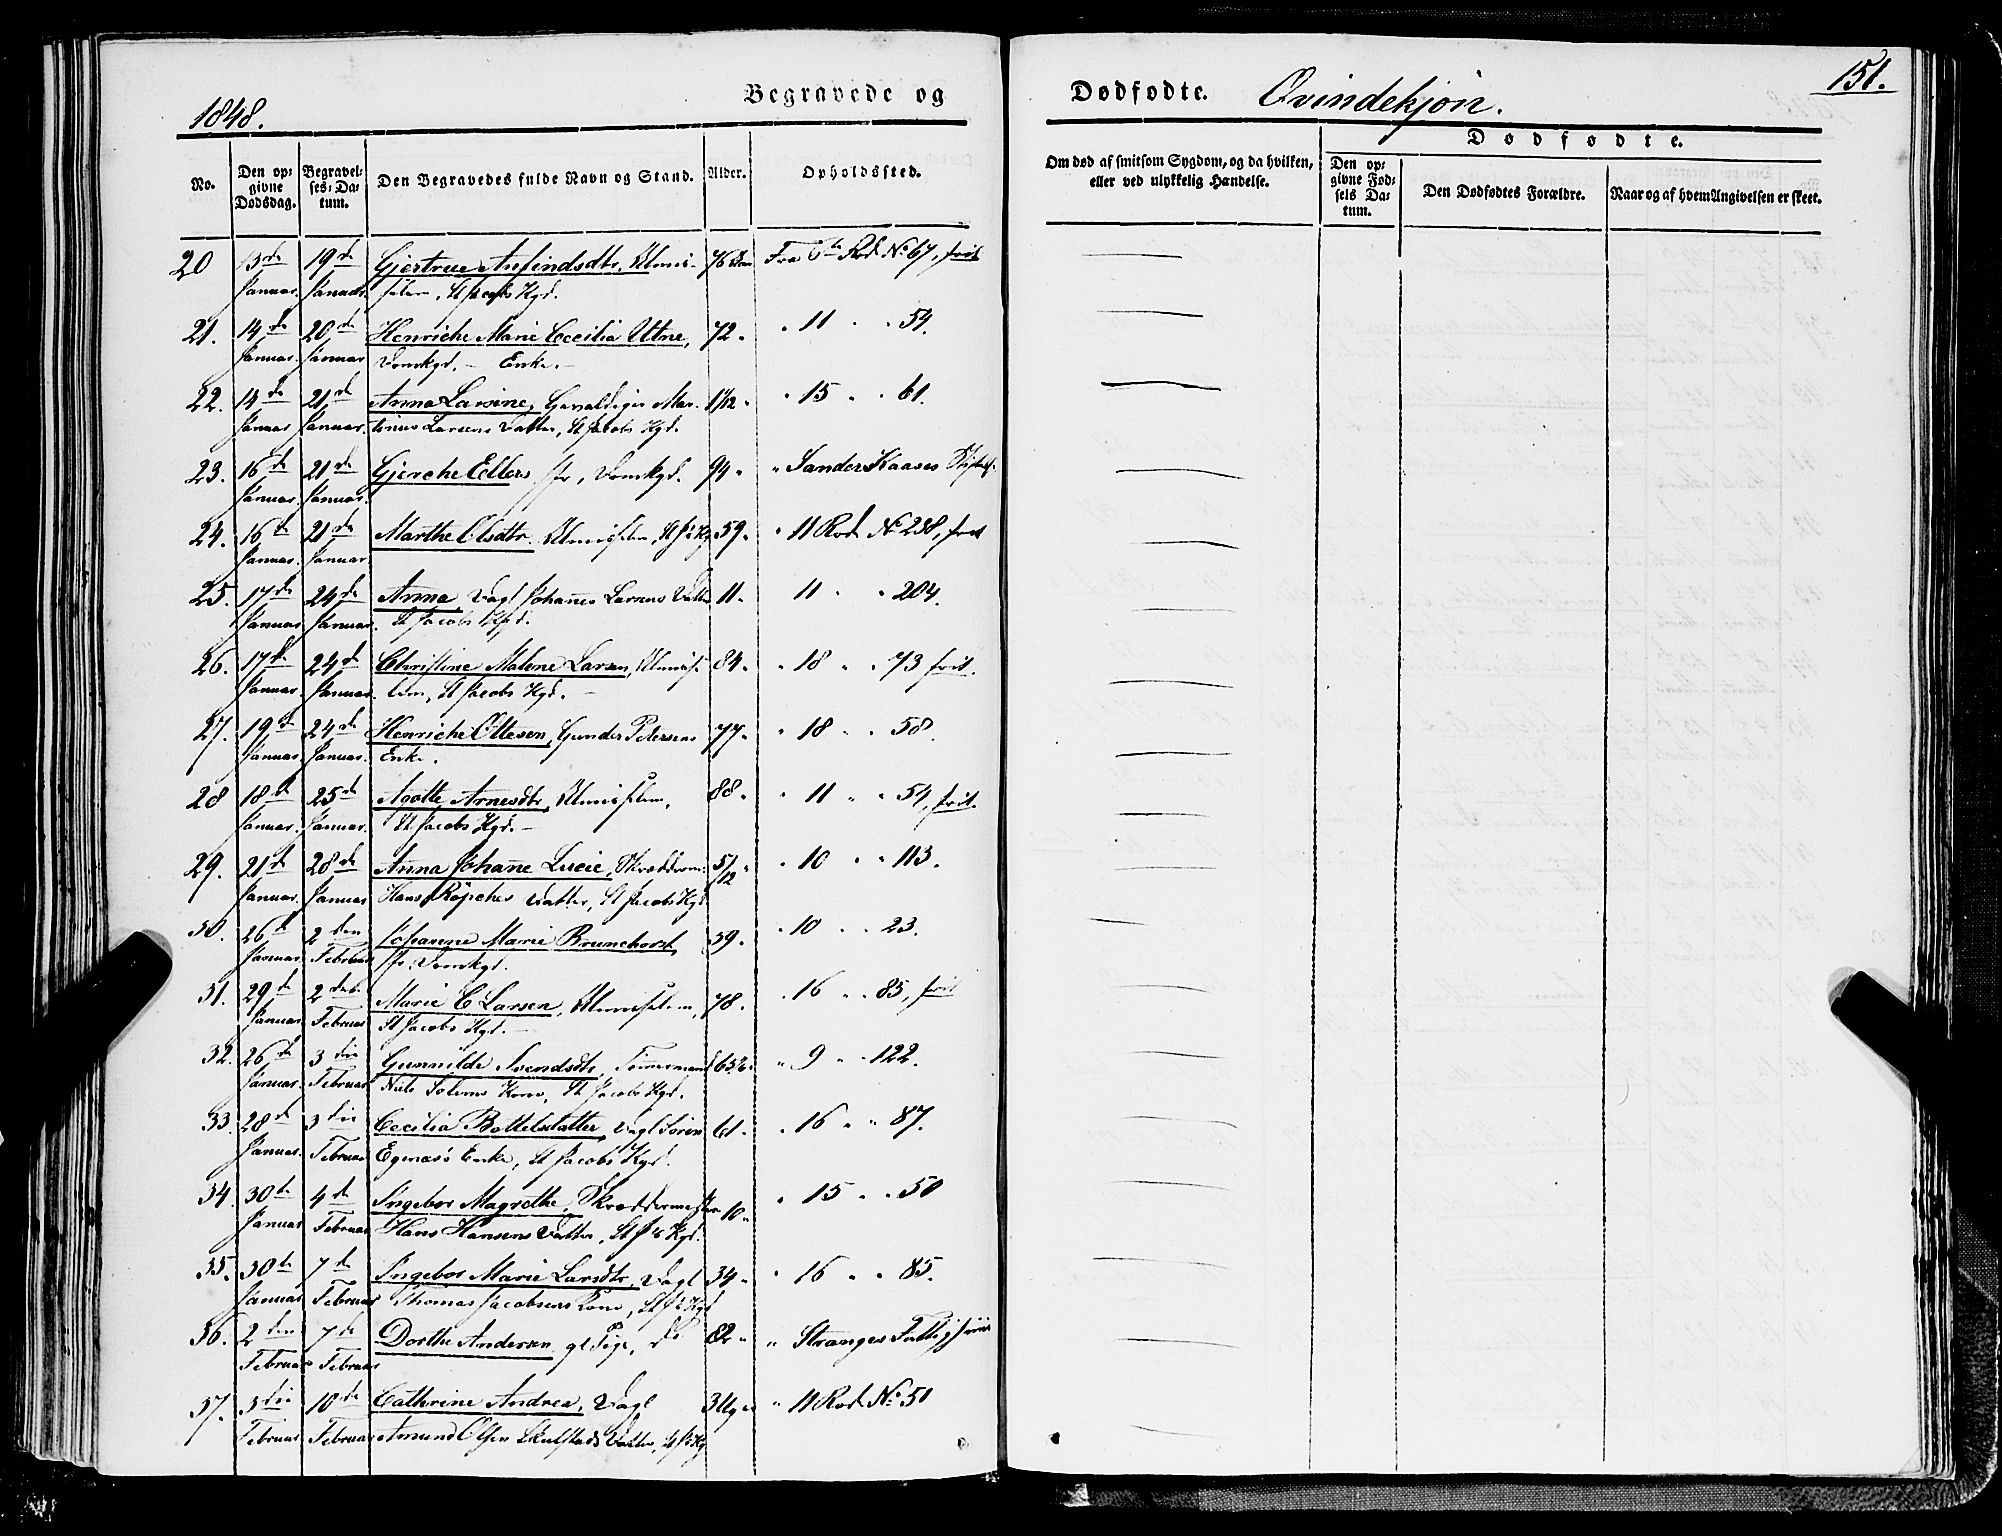 151.
1848.
Begravede og
Dødfødte. Qvindekjøn.
No.
Den opgivne Dødsdag.
Begravelses-Datum.
Den Begravedes fulde Navn og Stand.
Alder.
Opholdssted.
Om død af smitsom Sygdom, og da hvilken, eller ved ulykkelig Hændelse.
Dødfødte.
Den opgivne Fødsels Datum.
Den Dødfødtes Forældre.
Naar og af hvem Angivelsen er skeet.
20 13de 19de Gjertrue Anfindsdtr, Almis- 76 Fra Rod No 67, frit
Januar. Januar. lem, St Jacobs Kgd.
21. 14de 20de Henriche Marie Cecilia Utne, 72 " 11 " " 54.
Januar. Januar Domkgd. — Enke. —
22. 14de 21de Anna Larsine, Gevaldiger Mar- 1 1/12 " 15 " " 61.
Januar Januar. tinus Larsens Datter, St Jacobs Kgd.
23. 16de 21de Gjerche Ellers, Domkgd. 94 " " Sander Kaases Stiftels.
Januar Januar.
24. 16de 21de Marthe Olsdtr, Almislem, St Js Kg 59 " " 11 Rod No 238, frit
Januar. Januar.
25. 17de 24de Anna Dagl Johannes Larsens Datter 11 " 11 " " 204.
Januar Januar. St Jacobs Kgd.
26. 17de 24de Christine Malene Larsen, Almis- 84 " " 18 " " 73 frit.
Januar. Januar. lem, St Jacobs Kgd. —
27. 19de 24de Henriche Ottesen, Gunder Petersens 77 " " 18 " " 58.
Januar. Januar. Enke.
28 18de 25de Agathe Arnesdtr, Almislem, 88 " " 11 " " 54, frit.
Januar. Januar. St Jacobs Kgd. —
29. 21de 28de Anna Johanne Lucie, Skrædderm: 5/12 " " 10 " " 113.
Januar. Januar Hans Röpches Datter, St Jacobs Kgd
30. 26de 2den Johanne Marie Brunchorst, 39 " " 10 " " 23.
Januar. Februar Domkgd.
31. 29de 2den Marie C Larsen, Almislem, 78 " " 16 " " 85, frit
Januar. Februar St Jacobs Kgd. —
32. 26de 3die Gunnilde Svendsdtr, Tømmermand " 9 " " 122.
Januar. Februar Niels Solems Kone, St Jacobs Kgd.
33. 28de 3die Cecilia Bottelsdatter, Dagl Sören 61 " " 16 " " 87.
Januar. Februar Egenæs's Enke, St Jacobs Kgd.
34 30te 4de Ingebor Magrethe, Skræddermester 10 " " 15 " " 50
Januar Februar Hans Hansens Datter, St Js Kgd.
35. 30te 7de Ingebor Marie Larsdtr, Dagl 34 " " 16 " " 85.
Januar Februar Thomas Jacobsens Kone, St Js Kgd
36. 2den 7de Dorthe Andersen, gl Pige, do 82 " " Stranges Fattighuus
Februar Februar
37. 3die 10de Cathrine Andrea, Dagl 3 Ug " 11 Rod No 51
Februar Februar Amund Olsen Skulstads Datter, St Js Kg